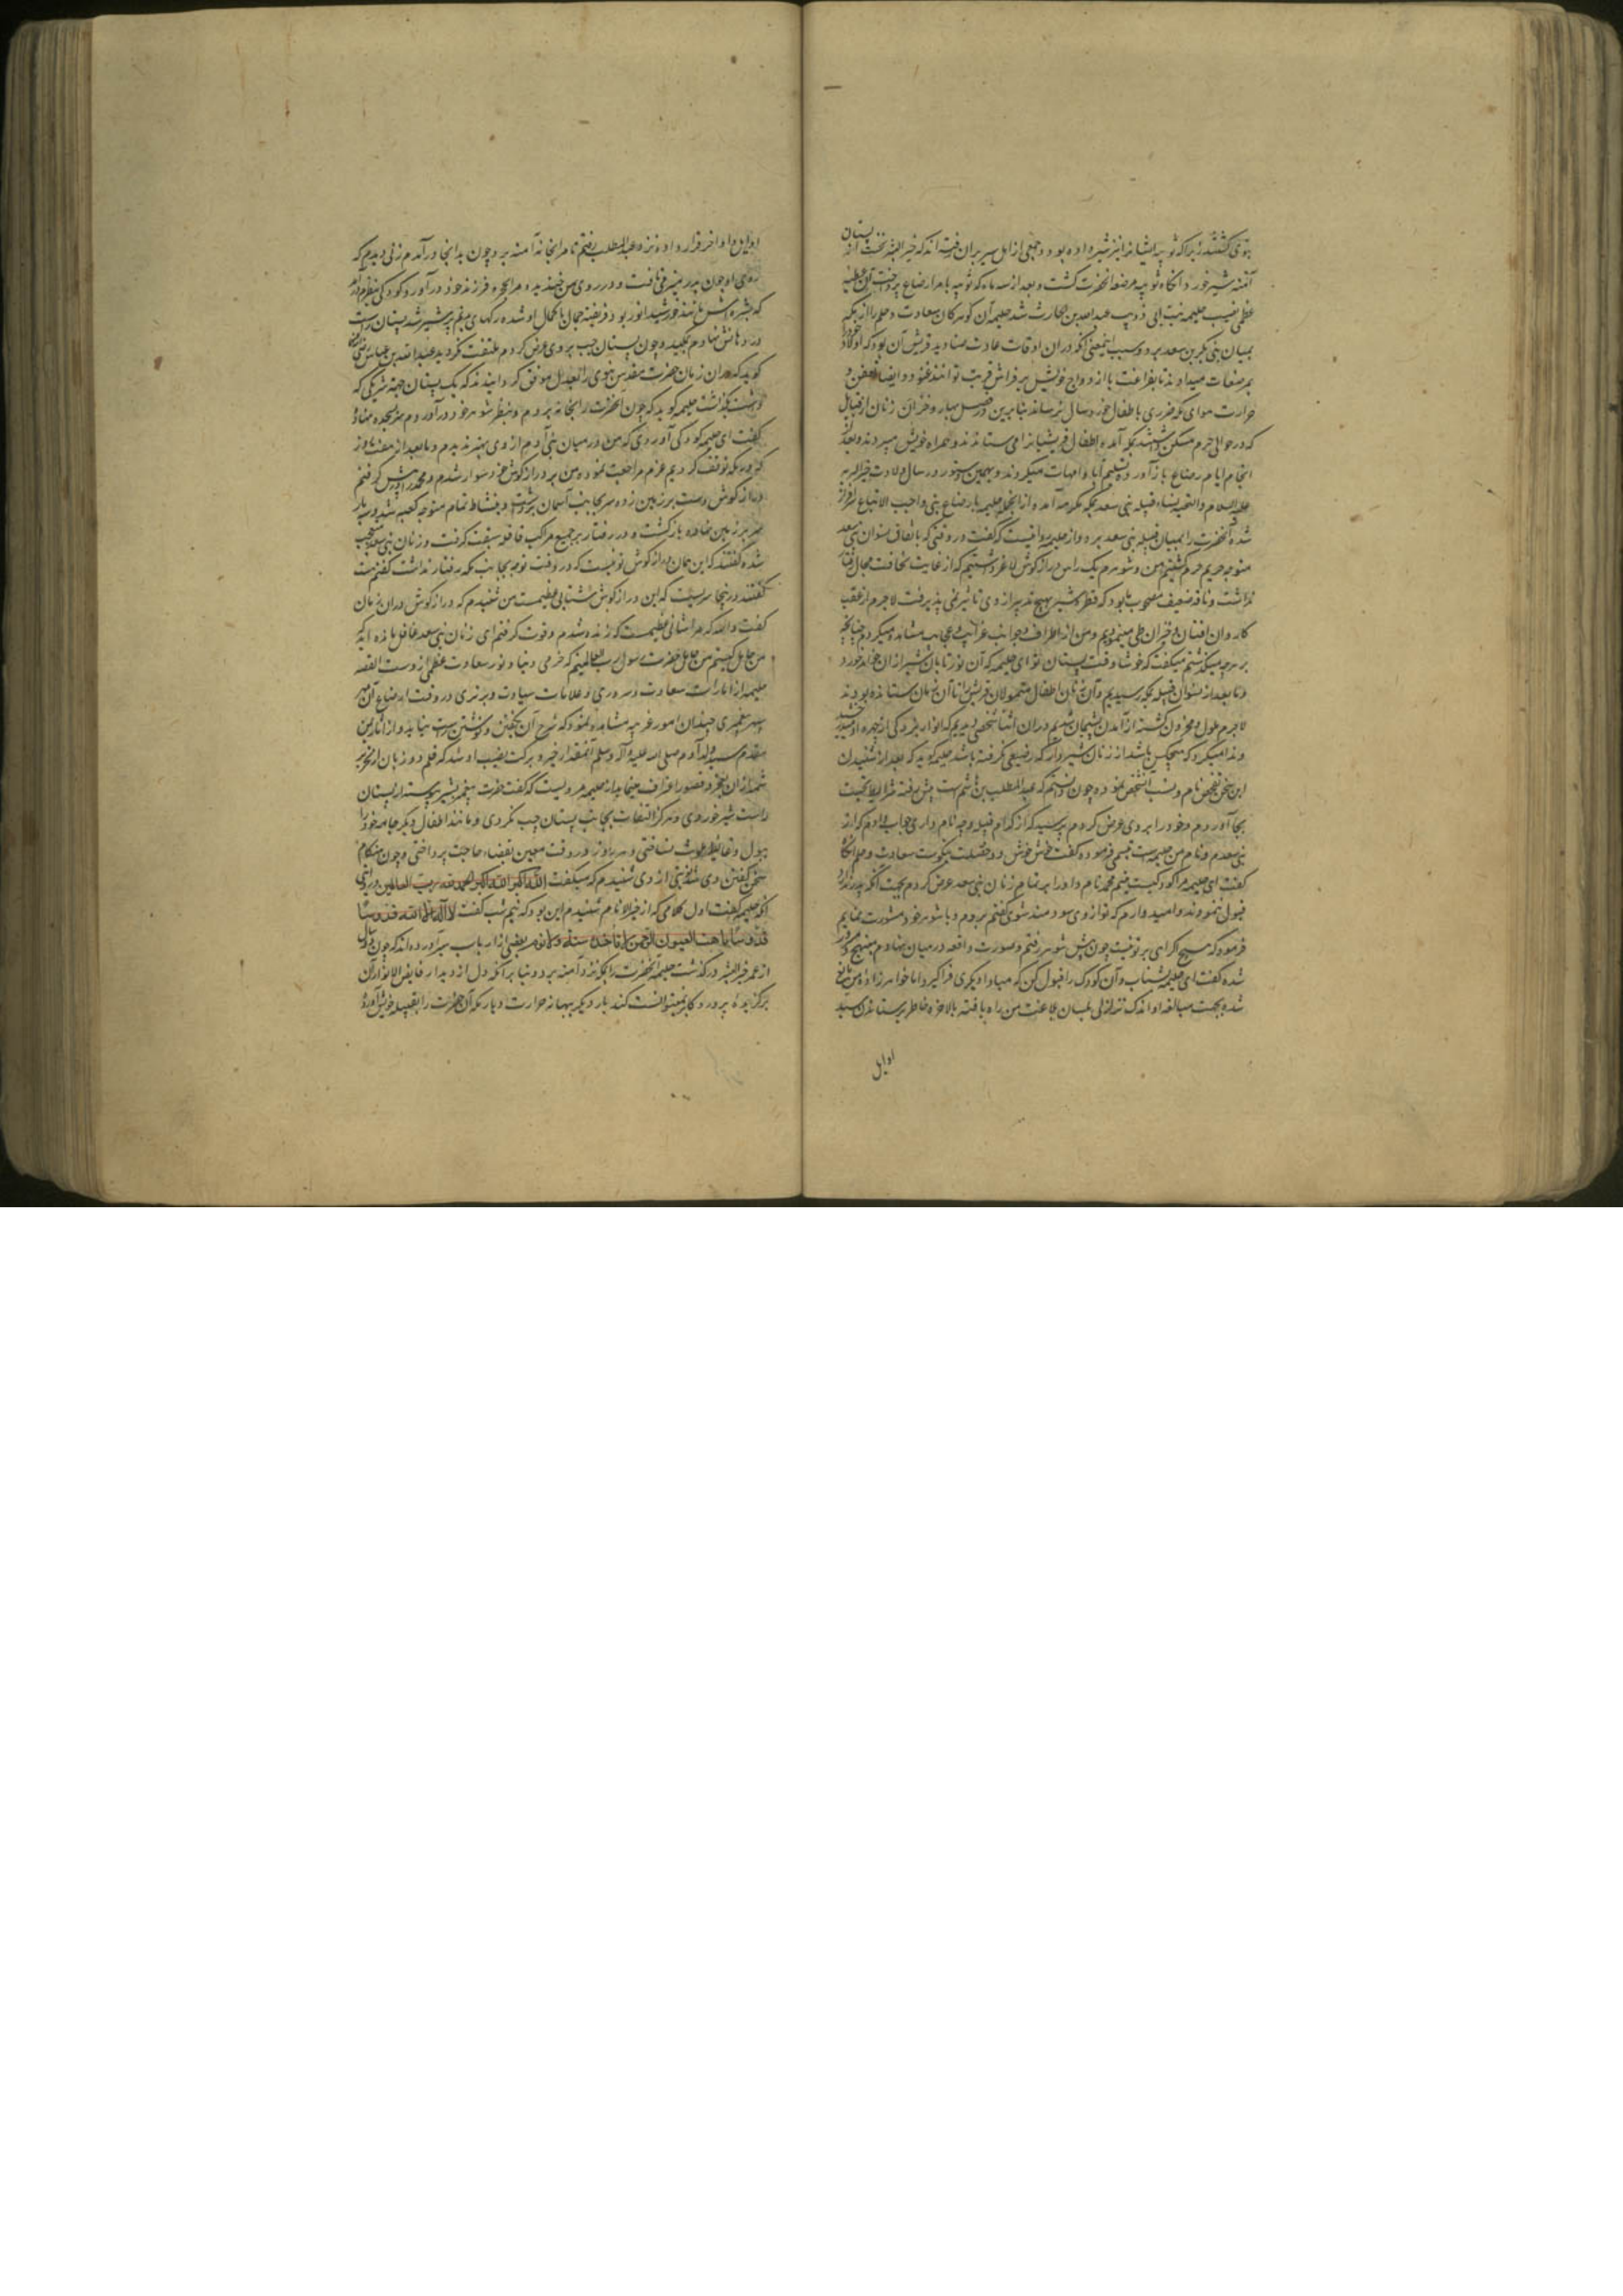 نبوی گشتند زیرا که ثویبه ایشانرا نیز شیر داده بود و جمعی از اهل سیر بر آن رفته اند که خیر البشر نخست از پستان
آمنه شیر خورد و آنگاه ثویبه مرضعه آنحضرت گشت و بعد از سه ماه که ثویبه بامر ارضاع پرداخت آن عطیه
عظمی نصیب حلیمه بنت ابی ذویب عبدالله بن الحارث شد حلیمه آن گوهر کان سعادت و حلم را از مکه
بمیان بنی بکر بن سعد برد و سبب اینمعنی آنکه در آن اوقات عادت صنادید قریش آن بود که اولاد خود را
بمرضعات میدادند تا بفراغت با ازدواج خویش بر فراش قربت توانند غنود و ایضا تعفن و
حرارت هوای مکه ضرری باطفال خورد سال نرساند بنابرین در فصل بهار و خزان زنان از قبایل
که در حوالی حرم مسکن داشتند بمکه آمده اطفال قریشیانرا می ستاندند و همراه خویش میبردند و بعد از
انجام ایام رضاع باز آورده تسلیم آبا و امهات میکردند و بهمین دستور در سال ولادت خیر البریه
علیه السلام والتحیه نساء قبیله بنی سعد بمکه مکرمه آمدند و از آنجمله حلیمه بارضاع نبی واجب الاتباع سرافراز
شده آنحضرت را بمیان قبیله بنی سعد برد و از حلیمه روایتست که گفت در وقتی که باتفاق نسوان بنی سعد
متوجه حریم حرم گشتیم من و شوهرم یک راس دراز گوش لاغر داشتیم که از غایت نحافت مجال رفتار
نداشت و ناقه ضعیف مصحوب ما بود که قطره شیر بهیچ تدبیر از وی تاثیر نمی پذیرفت لاجرم از عقب
کاروان افتان و خیزان طی مینمودیم و من از اطراف و جوانب غرایب و عجایب مشاهده میکردم چنانچه
بر هرچه میگذشتم میگفت که خوشا وقت پستان تو ای حلیمه که آن نور تابان شیر از آن خواهد خورد
و ما بعد از نسوان قبیله بمکه رسیدیم و آن زنان اطفال متمولان قریش را تا آن زمان ستانده بودند
لاجرم ملول و محزون گشته از آمدن پشیمان شدیم در آن اثنا شخصی دیدیم که انوار بزرگی از چهره او میدرخشید
و ندا میکرد که هیچکس باشد از زنان شیردار که رضیعی نگرفته باشد حلیمه گوید که بعد از شنیدن
این سخن تفحص نام و نسب آنشخص نموده چون دانستم که عبدالمطلب بن هاشم است پیش رفته شرایط تحیت
بجا آوردم و خود را بر وی عرض کردم پرسید که از کدام قبیله و چه نام داری جواب دادم که از
بنی سعدم و نام من حلیمه است تبسمی فرموده گفت خوش خوش دو خصلت نیکوست سعادت و حلم آنگاه
گفت ای حلیمه مرا کودکیست یتیم محمد نام و او را بر تمام زنان بنی سعد عرض کردم بجهت آنکه پدر ندارد
قبول ننمودند و امیدوارم که تو از وی سودمند شوی گفتم بروم و با شوهر خود مشورت نمایم
فرمود که هیچ اکراهی بر تو نیست چون پیش شوهر رفتم و صورت واقعه در میان نهادم مبتهج و مسرور
شده گفت ای حلیمه بشتاب و آن کودک را قبول کن که مبادا دیگری فراگیرد اما خواهرزاده من مانع
شده بجهت مبالغه او اندک تزلزلی بمیان عزیمت من راه یافته بالاخره خاطر بر ستاندن سید
اوایل
اوایل و اواخر قرار داده نزد عبدالمطلب رفتم تا مرا بخانه آمنه برد چون بدانجا درآمدم زنی دیدم که
روی او چون بدر منیر می تافت و در روی من خندید و مرا بحجره فرزند خود درآورد کودکی بنظرم درآمد
که بشره اش مانند خورشید انور بود فریفته جمال با کمال او شده رگهای پستانم پر شیر شد پستان راست
در دهانش نهادم بمکید و چون پستان چپ بر وی عرض کردم ملتفت نگردید عبدالله بن عباس رضی الله عنه
گوید که در آن زمان حضرت مقدس نبوی را بعدل موفق گردانیدند که یک پستان جهة شریکی که
داشت گذاشت حلیمه گوید که چون آنحضرت را بخانه بردم و بنظر شوهر خود درآوردم سر بسجده نهاده
گفت ای حلیمه کودکی آوردی که من در میان بنی آدم از وی بهتر ندیدم و ما بعد از هفت روز
که در مکه توقف کردیم عزم مراجعت نموده من بر دراز گوش خود سوار شدم و محمد را در پیش گرفتم
دراز گوش دست بر زمین زده سر بجانب آسمان برداشت و بنشاط تمام متوجه کعبه شد و سه بار
سر بر زمین نهاده بازگشت و در رفتار بر جمیع مراکب قافله سبقت گرفت و زنان بنی سعد متعجب
شده گفتند که این همان دراز گوش تو نیست که در وقت توجه بجانب مکه رفتار نداشت گفتم هست
گفتند درینجا سریست که این دراز گوش را شانی عظیمست من شنیدم که دراز گوش در آن زمان
گفت والله که مرا شانی عظیمست که زنده شدم و قوت گرفتم ای زنان بنی سعد غافل مانده اید که
من حامل کیستم من حامل حضرت رسول رب العالمینم که خرمی دنیا و نور سعادت عظمی از وست القصه
حلیمه از امارات سعادت و سروری و علامات سیادت و برتری در وقت ارضاع آن مهر
سپهر پیغمبری چندان امور غریبه مشاهده نمود که شرح آن بگفتن و نوشتن راست نیاید و از آثار یمن
مقدم سید ولد آدم صلی الله علیه و آله و سلم آنمقدار خیر و برکت نصیب او شد که قلم دو زبان از تحریر
شمه از آن بعجز و قصور اعتراف مینماید از حلیمه مرویست که گفت حضرت پیغمبر پیوسته از پستان
راست شیر خوردی و هرگز التفات بجانب پستان چپ نکردی و مانند اطفال دیگر جامه خود را
ببول و غایط ملوث نساختی و هر روز در وقت معین بقضاء حاجت پرداختی و چون هنگام
سخن گفتن وی شد شبی از وی شنیدم که میگفت الله اکبر الله اکبر الحمد لله رب العالمین و روایتی
آنکه حلیمه گفت اول کلامی که از خیر الانام شنیدم این بود که نیم شب گفت لا اله الا الله قدوسا
قدوسا نامت العیون والرحمن لا تاخذه سنة ولا نوم بعضی از ارباب سیر آورده اند که چون دو سال
از عمر خیر البشر درگذشت حلیمه آنحضرت را بمکه نزد آمنه برد و بنا بر آنکه دل از دیدار فایض الانوار آن
برگزیده پروردگار نمیتوانست کند بار دیگر ببهانه حرارت دیار مکه آن حضرت را بقبیله خویش آورد